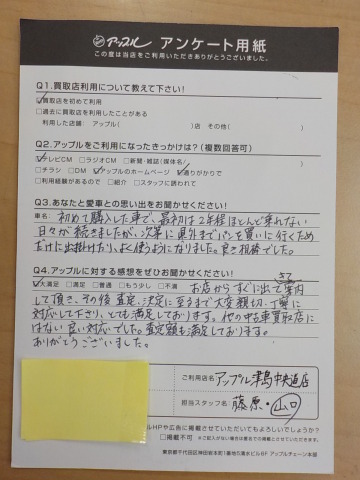 アップル アンケート用紙
この度は当店をご利用いただきありがとうございました。
Q1.買取店利用について教えて下さい!
☑買取店を初めて利用
□過去に買取店を利用したことがある
利用した店舗: アップル( )店 その他( )
Q2.アップルをご利用になったきっかけは?(複数回答可)
☑テレビCM □ラジオCM □新聞・雑誌(媒体名 )
□チラシ □DM ☑アップルのホームページ ☑通りがかりで
□利用経験があるので □紹介 □スタッフに誘われて
Q3.あなたと愛車との思い出をお聞かせください!
車名: 初めて購入した車で、最初は2年程ほとんど乗れない
日々が続きましたが、次第に県外までパンを買いに行くため
だけに出掛けたり、よく使うようになりました。良き相棒でした。
Q4.アップルに対する感想をぜひお聞かせください!
☑大満足 □満足 □普通 □もう少し □不満 お店からすぐに出て案内
して頂き、その後 査定、決定に至るまで大変親切、丁寧に
対応して下さり、とても満足しております。他の中古車買取店に
はない良い対応でした。査定額も満足しております。
ありがとうございました。
ご利用店名 アップル津島中央通店
担当スタッフ名 藤原・山口
HPや広告に掲載させていただいてもよろしいでしょうか?
□掲載不可 ※ご記入がない場合は匿名での掲載とさせていただきます。
東京都千代田区神田岩本町1番地5清水ビル6F アップルチェーン本部